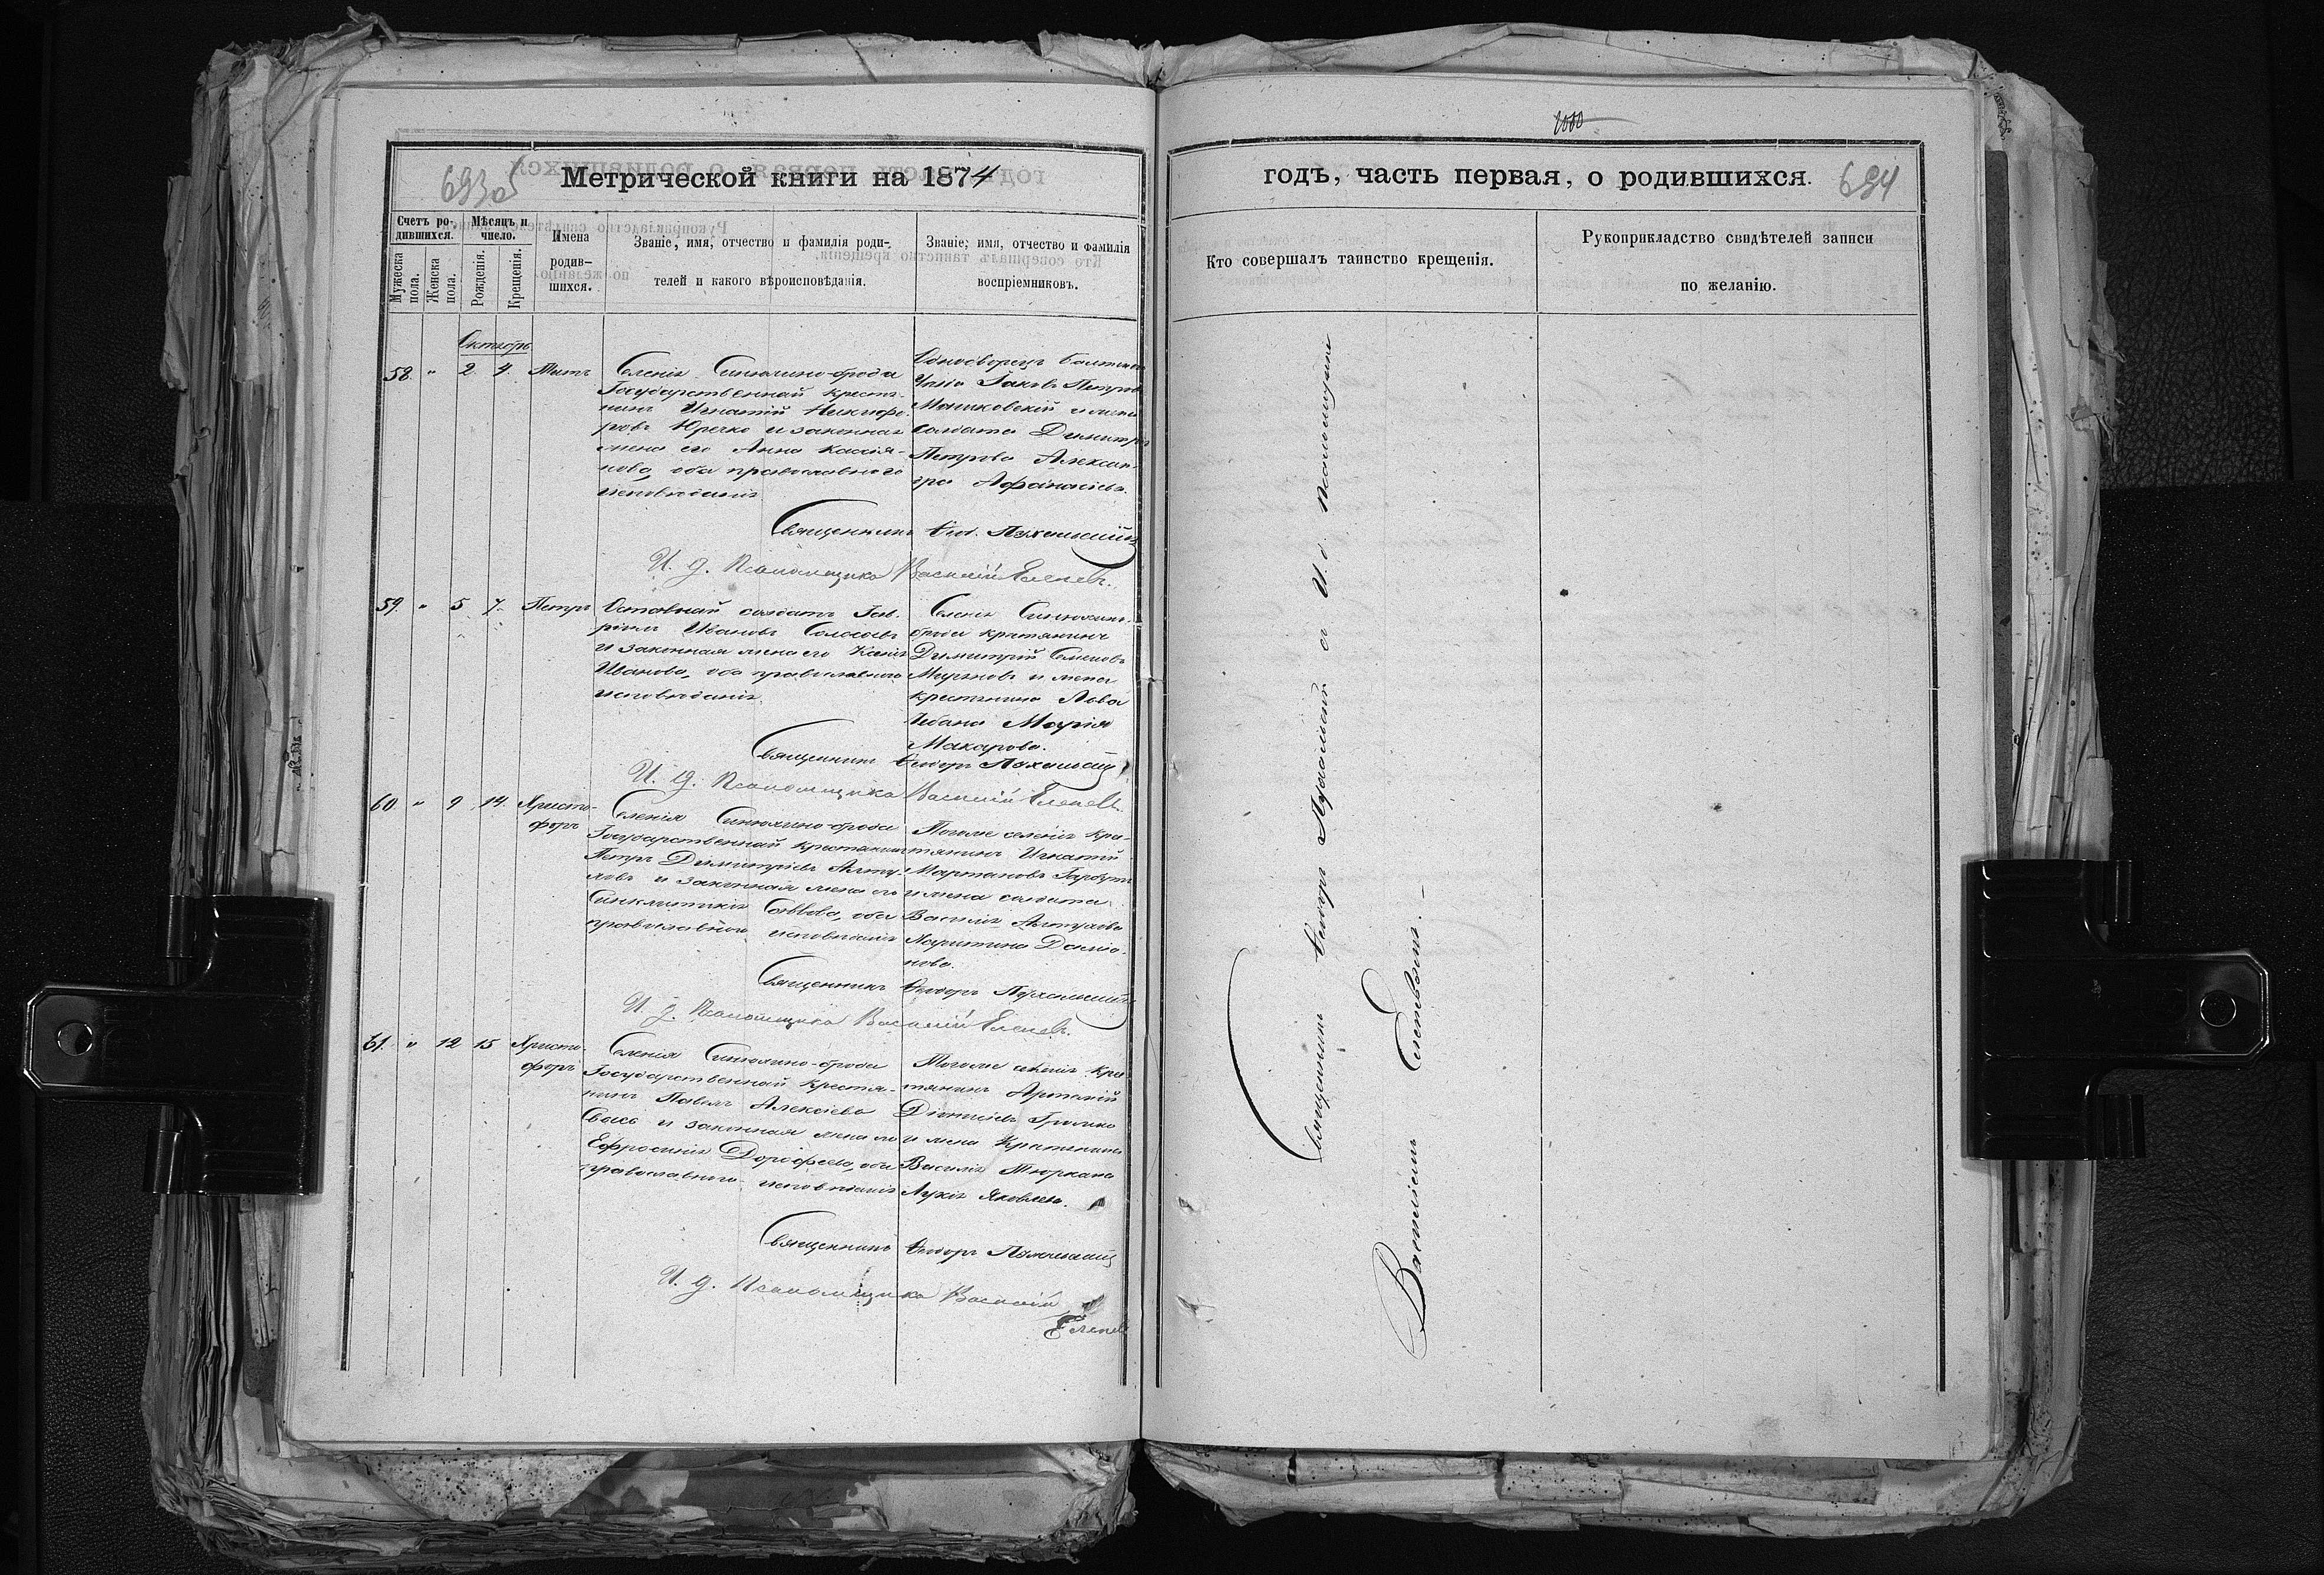 693об
Метрической книги на 1874
Счетъ ро-
дившихся.
Мѣсяцъ и
число.
Мужеска
пола.
Женска
пола.
Рожденія.
Крещенія.
Имена
родив-
шихся.
Званіе, имя, отчество и фамилія роди-
телей и какого вѣроисповѣданія.
Званіе, имя, отчество и фамилія
воспріемниковъ.
Октябрь
58. " 2. 4.
Селенія Синюхино-брода
Государственный кресть-
нинъ Игнатій Никифо-
ровъ Юрченко и законная
жена его Анна Кассія-
нова, оба православного
исповѣданія
Яковъ Петровъ
Маньковскій и жена
солдата Димитрія
Петрова Алексан-
дра Афанасіева.
Священникъ
И. д. Псаломщика Василій Елен
59. " 5 7. Петръ
солдатъ Гав-
ріилъ Ивановъ
и законная жена его
Иванова, оба православного
исповѣданія.
Селенія Синюхино-
брода крестянинъ
Димитрій Семеновъ
и жена
крестянина Льва
Чебана Марія
Макарова.
Священникъ Ѳеодоръ
И. д. Псаломщика Василій
60 " 9 14. Христо-
форъ
Селенія Синюхино-брода
Государственный крестянинъ
Петръ Димитріевъ Алту-
ховъ и законная жена его
Синклитикія Саввова, оба
православного исповѣданія
Тогоже селенія кре-
стянинъ Игнатій
Мартиновъ
и жена солдата
Василія Алтухова
Харитина Даміа-
нова.
Священникъ Ѳеодоръ
И. д. Псаломщика Василій
61. " 12 15 Христо-
форъ
Селенія Синюхино-брода
Государственный крестья-
нинъ Павелъ Алексіевъ
и законная жена его
Ефросинія Дорофеева, оба
православного исповѣданія
Тогоже селенія кре-
стянинъ Артемій
Діонисіевъ Громко
и жена Крестянина
Василія Тюркана
Лукія Яковлева.
Священникъ Ѳеодоръ
И. д. Псаломщика Василій
годъ, часть первая, о родившихся.
694
Кто совершалъ таинство крещенія.
Рукоприкладство свидѣтелей записи
по желанію.
Священникъ Ѳеодоръ с И. д. псаломщика
Василіемъ